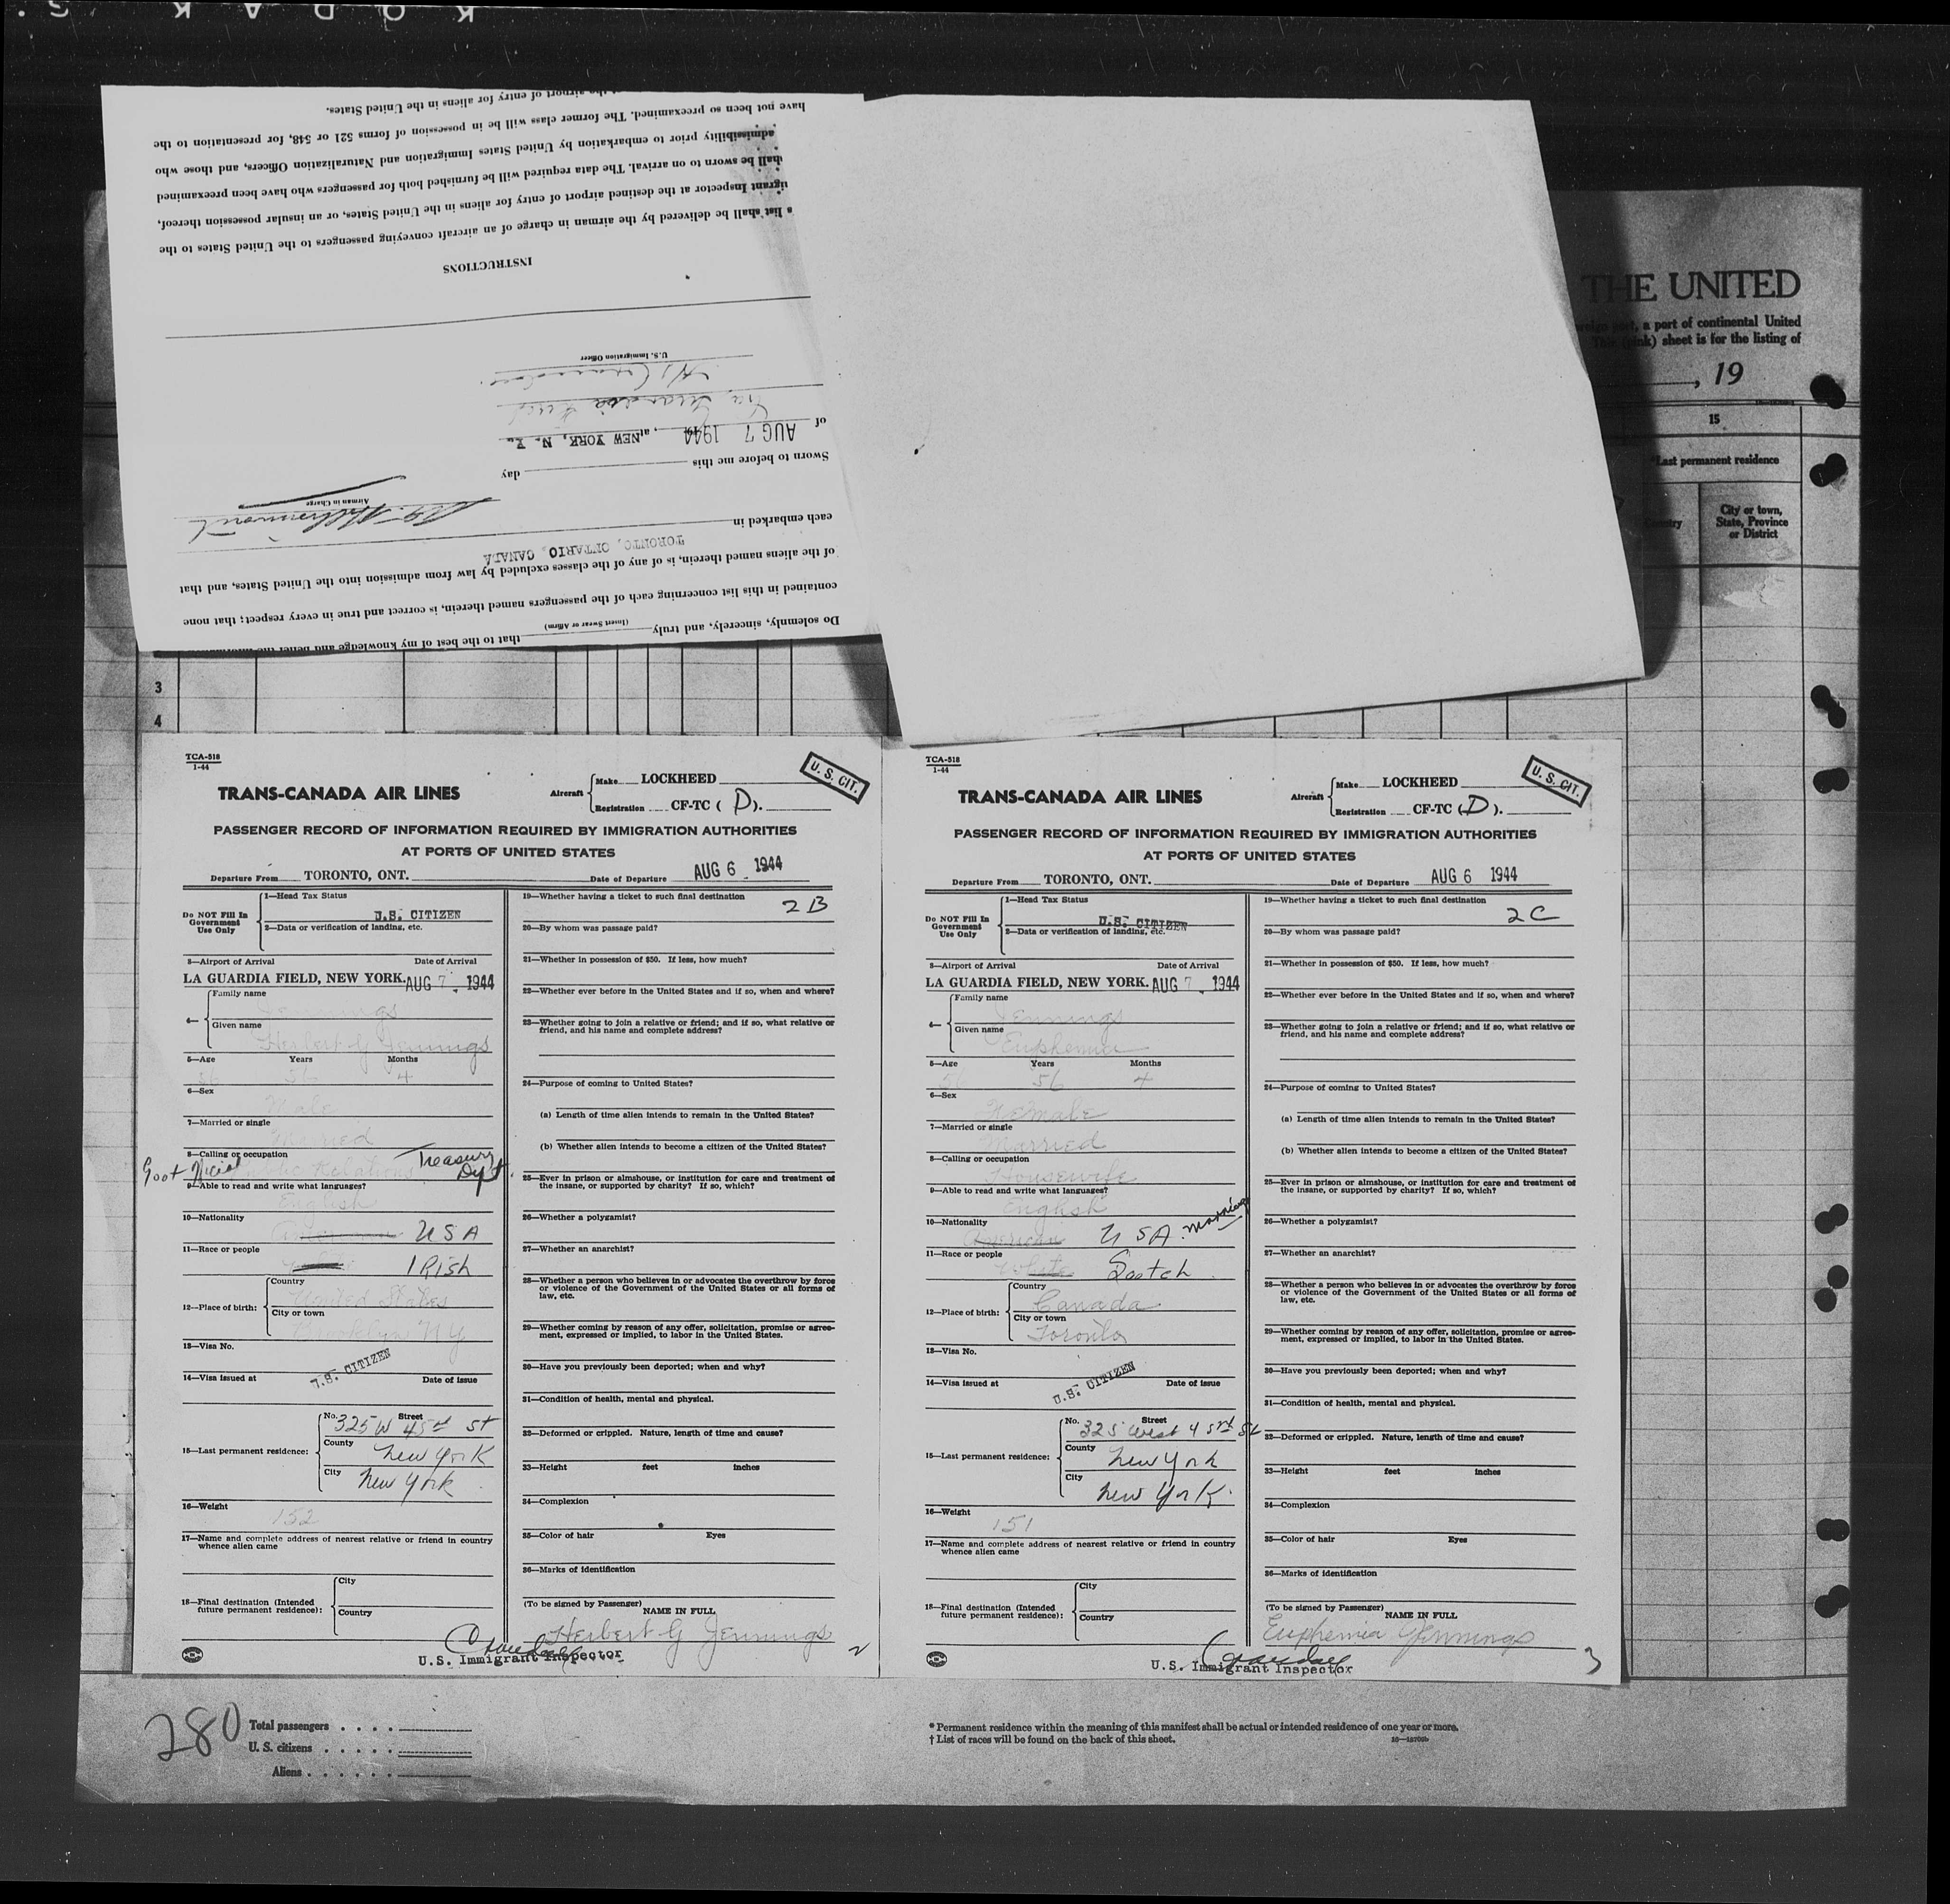 KODAK S.
at the airport of entry for aliens in the United States.
have not been so preexamined. The former class will be in possession of forms 521 or 548, for presentation to the
admissibility prior to embarkation by United States Immigration and Naturalization Officers, and those who
shall be sworn to on arrival. The data required will be furnished both for passengers who have been preexamined
igrant Inspector at the destined airport of entry for aliens in the United States, or an insular possession thereof,
s list shall be delivered by the airman in charge of an aircraft conveying passengers to the United States to the
INSTRUCTIONS
U.S. Immigration Officer
of AUG 7 1944, at NEW YORK, N. Y.
Sworn to before me this day
Airman in Charge
each embarked in
TORONTO, ONTARIO, CANADA
of the aliens named therein, is of any of the classes excluded by law from admission into the United States, and that
contained in this list concerning each of the passengers named therein, is correct and true in every respect; that none
Do solemnly, sincerely, and truly (Insert Swear or Affirm) that to the best of my knowledge and belief the
THE UNITED
a port of continental United
sheet is for the listing of
, 19
15
Last permanent residence
Country
City or town,
State, Province
or District
3
4
TCA-518
1-44
TRANS-CANADA AIR LINES
Aircraft Make LOCKHEED
Registration CF-TC (D).
U. S. CIT.
PASSENGER RECORD OF INFORMATION REQUIRED BY IMMIGRATION AUTHORITIES
AT PORTS OF UNITED STATES
Departure From TORONTO, ONT. Date of Departure AUG 6 1944
Do NOT Fill In
Government
Use Only
1—Head Tax Status
U.S. CITIZEN
2—Data or verification of landing, etc.
3—Airport of Arrival Date of Arrival
LA GUARDIA FIELD, NEW YORK. AUG 7 1944
4—
Family name
Jennings
Given name
Herbert G Jennings
5—Age Years Months
56 4
6—Sex
Male
7—Married or single
Married
8—Calling or occupation
Govt Official Relations Treasury Dept.
9—Able to read and write what languages?
English
10—Nationality
USA
11—Race or people
IRish
12—Place of birth:
Country
United States
City or town
NY
13—Visa No.
U.S. CITIZEN
14—Visa issued at Date of issue
15—Last permanent residence:
No. Street
325 W 45rd St
County
New York
City
New York
16—Weight
152
17—Name and complete address of nearest relative or friend in country
whence alien came
18—Final destination (Intended
future permanent residence):
City
Country
19—Whether having a ticket to such final destination
2B
20—By whom was passage paid?
21—Whether in possession of $50. If less, how much?
22—Whether ever before in the United States and if so, when and where?
23—Whether going to join a relative or friend; and if so, what relative or
friend, and his name and complete address?
24—Purpose of coming to United States?
(a) Length of time alien intends to remain in the United States?
(b) Whether alien intends to become a citizen of the United States?
25—Ever in prison or almshouse, or institution for care and treatment of
the insane, or supported by charity? If so, which?
26—Whether a polygamist?
27—Whether an anarchist?
28—Whether a person who believes in or advocates the overthrow by force
or violence of the Government of the United States or all forms of
law, etc.
29—Whether coming by reason of any offer, solicitation, promise or agree-
ment, expressed or implied, to labor in the United States.
30—Have you previously been deported; when and why?
31—Condition of health, mental and physical.
32—Deformed or crippled. Nature, length of time and cause?
33—Height feet inches
34—Complexion
35—Color of hair Eyes
36—Marks of identification
(To be signed by Passenger)
NAME IN FULL
Herbert G Jennings
Crandall
U.S. Immigrant Inspector
2
TCA-518
1-44
TRANS-CANADA AIR LINES
Aircraft Make LOCKHEED
Registration CF-TC (D).
U. S. CIT.
PASSENGER RECORD OF INFORMATION REQUIRED BY IMMIGRATION AUTHORITIES
AT PORTS OF UNITED STATES
Departure From TORONTO, ONT. Date of Departure AUG 6 1944
Do NOT Fill In
Government
Use Only
1—Head Tax Status
U.S. CITIZEN
2—Data or verification of landing, etc.
3—Airport of Arrival Date of Arrival
LA GUARDIA FIELD, NEW YORK. AUG 7 1944
4—
Family name
Jennings
Given name
Euphemia
5—Age Years Months
56 4
6—Sex
Female
7—Married or single
Married
8—Calling or occupation
Housewife
9—Able to read and write what languages?
English
10—Nationality
American USA. marriage
11—Race or people
White Scotch
12—Place of birth:
Country
Canada
City or town
Toronto
13—Visa No.
U.S. CITIZEN
14—Visa issued at Date of issue
15—Last permanent residence:
No. Street
325 West 45rd St
County
New York
City
New York.
16—Weight
151
17—Name and complete address of nearest relative or friend in country
whence alien came
18—Final destination (Intended
future permanent residence):
City
Country
19—Whether having a ticket to such final destination
2C
20—By whom was passage paid?
21—Whether in possession of $50. If less, how much?
22—Whether ever before in the United States and if so, when and where?
23—Whether going to join a relative or friend; and if so, what relative or
friend, and his name and complete address?
24—Purpose of coming to United States?
(a) Length of time alien intends to remain in the United States?
(b) Whether alien intends to become a citizen of the United States?
25—Ever in prison or almshouse, or institution for care and treatment of
the insane, or supported by charity? If so, which?
26—Whether a polygamist?
27—Whether an anarchist?
28—Whether a person who believes in or advocates the overthrow by force
or violence of the Government of the United States or all forms of
law, etc.
29—Whether coming by reason of any offer, solicitation, promise or agree-
ment, expressed or implied, to labor in the United States.
30—Have you previously been deported; when and why?
31—Condition of health, mental and physical.
32—Deformed or crippled. Nature, length of time and cause?
33—Height feet inches
34—Complexion
35—Color of hair Eyes
36—Marks of identification
(To be signed by Passenger)
NAME IN FULL
Euphemia Jennings
Crandall
U.S. Immigrant Inspector
3
280
Total passengers . . . .
U. S. citizens . . . . .
Aliens . . . . . .
* Permanent residence within the meaning of this manifest shall be actual or intended residence of one year or more.
† List of races will be found on the back of this sheet.